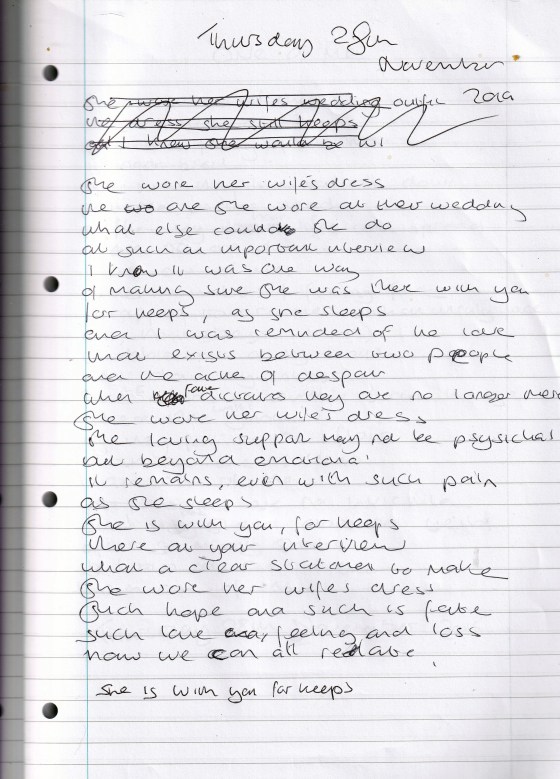 Thursday 28th
November
2019
She wore her wifes wedding outfit
the dress she still keeps
I knew she would be wi
She wore her wife's dress
the one she wore at their wedding
what else could she do
at such an important interview
I know it was one way
of making sure she was there with you
for keeps, as she sleeps
and I was reminded of the love
that exists between two people
and the ache of despair
when fate dictates they are no longer there
She wore her wife's dress
the loving support may not be psysichal
but beyond emotional
it remains, even with such pain
as she sleeps
She is with you, for keeps
there at your interview
what a clear statement to make
She wore her wifes dress
Such hope and such is fate
such love and, feeling and loss
how we can all relate
She is with you for keeps